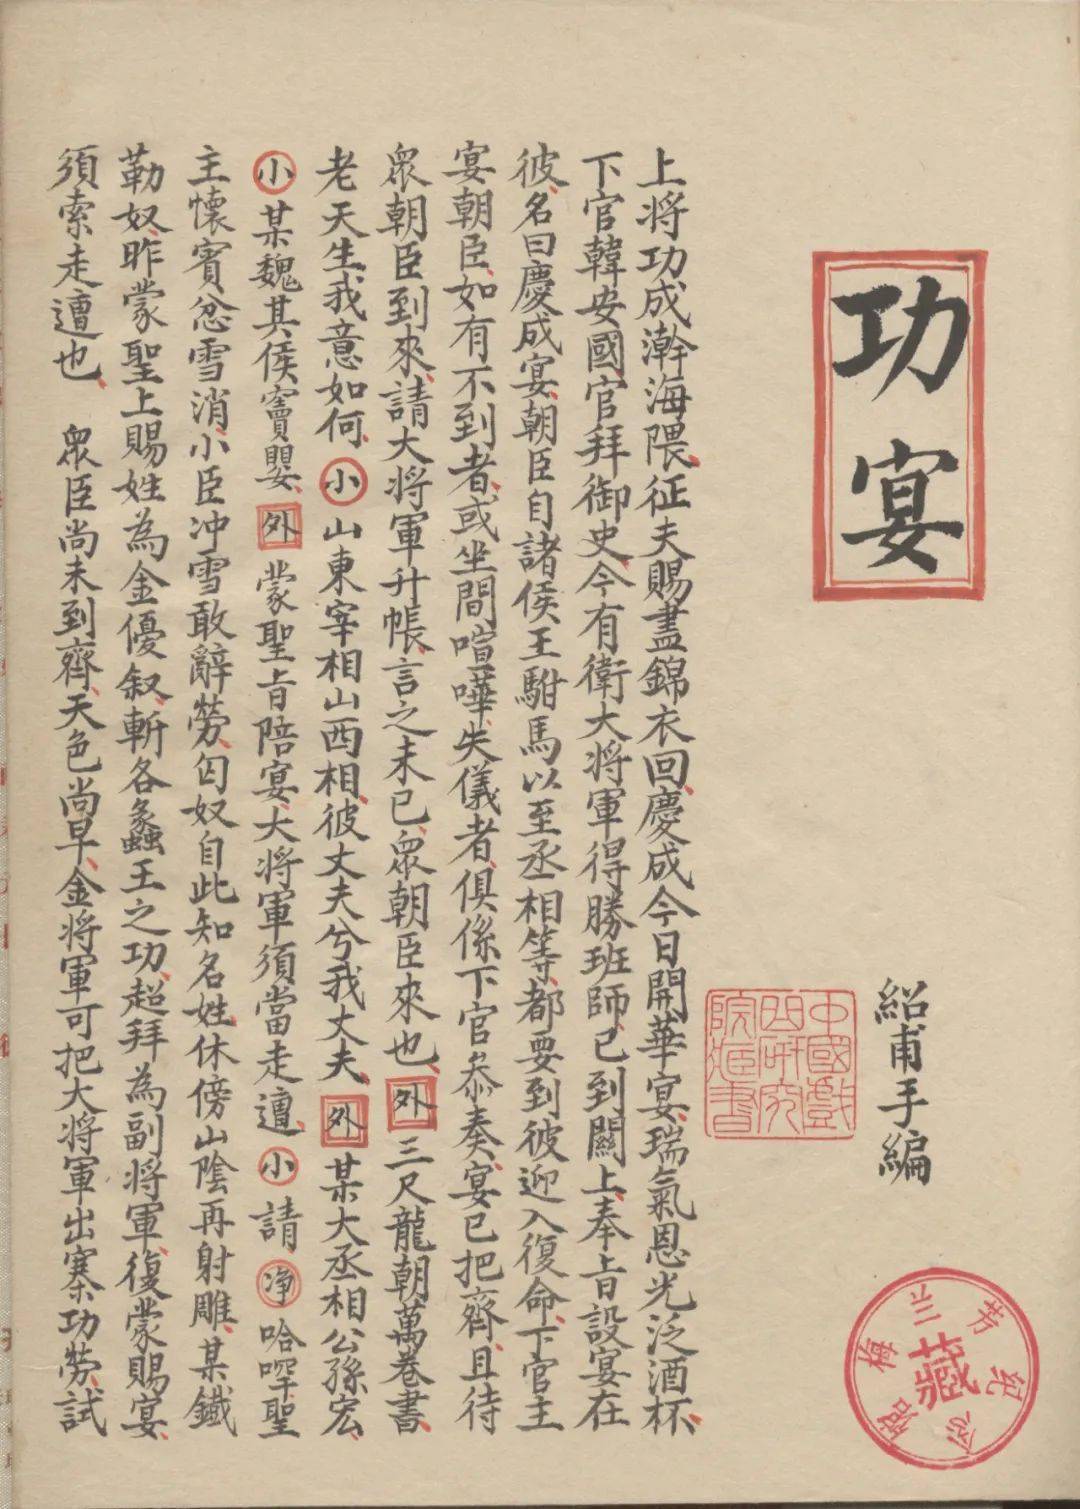 功宴
紹甫手編
中國戲
曲研究
院藏書
梅蘭芳紀念館
藏
上將功成瀚海隈征夫賜盡錦衣回慶成今日開華宴瑞氣恩光泛酒杯
下官韓安國官拜御史今有衛大將軍得勝班師已到關上奉旨設宴在
彼名曰慶成宴朝臣自諸侯王駙馬以至丞相等都要到彼迎入復命下官主
宴朝臣如有不到者或坐間喧嘩失儀者俱係下官叅奏宴已把齊且待
眾朝臣到來請大將軍升帳言之未已眾朝臣來也外三尺龍朝萬卷書
老天生我意如何小山東宰相山西相彼丈夫兮我丈夫外某大丞相公孫宏
小某魏其侯竇嬰外蒙聖旨陪宴大將軍須當走遭小請净哈喍聖
主懷賓忿雪消小臣冲雪敢辭勞匈奴自此知名姓休傍山陰再射雕某鐵
勒奴昨蒙聖上賜姓為金優叙斬各蠡王之功超拜為副將軍復蒙賜宴
須索走遭也 眾臣尚未到齊天色尚早金將軍可把大將軍出寨功勞試